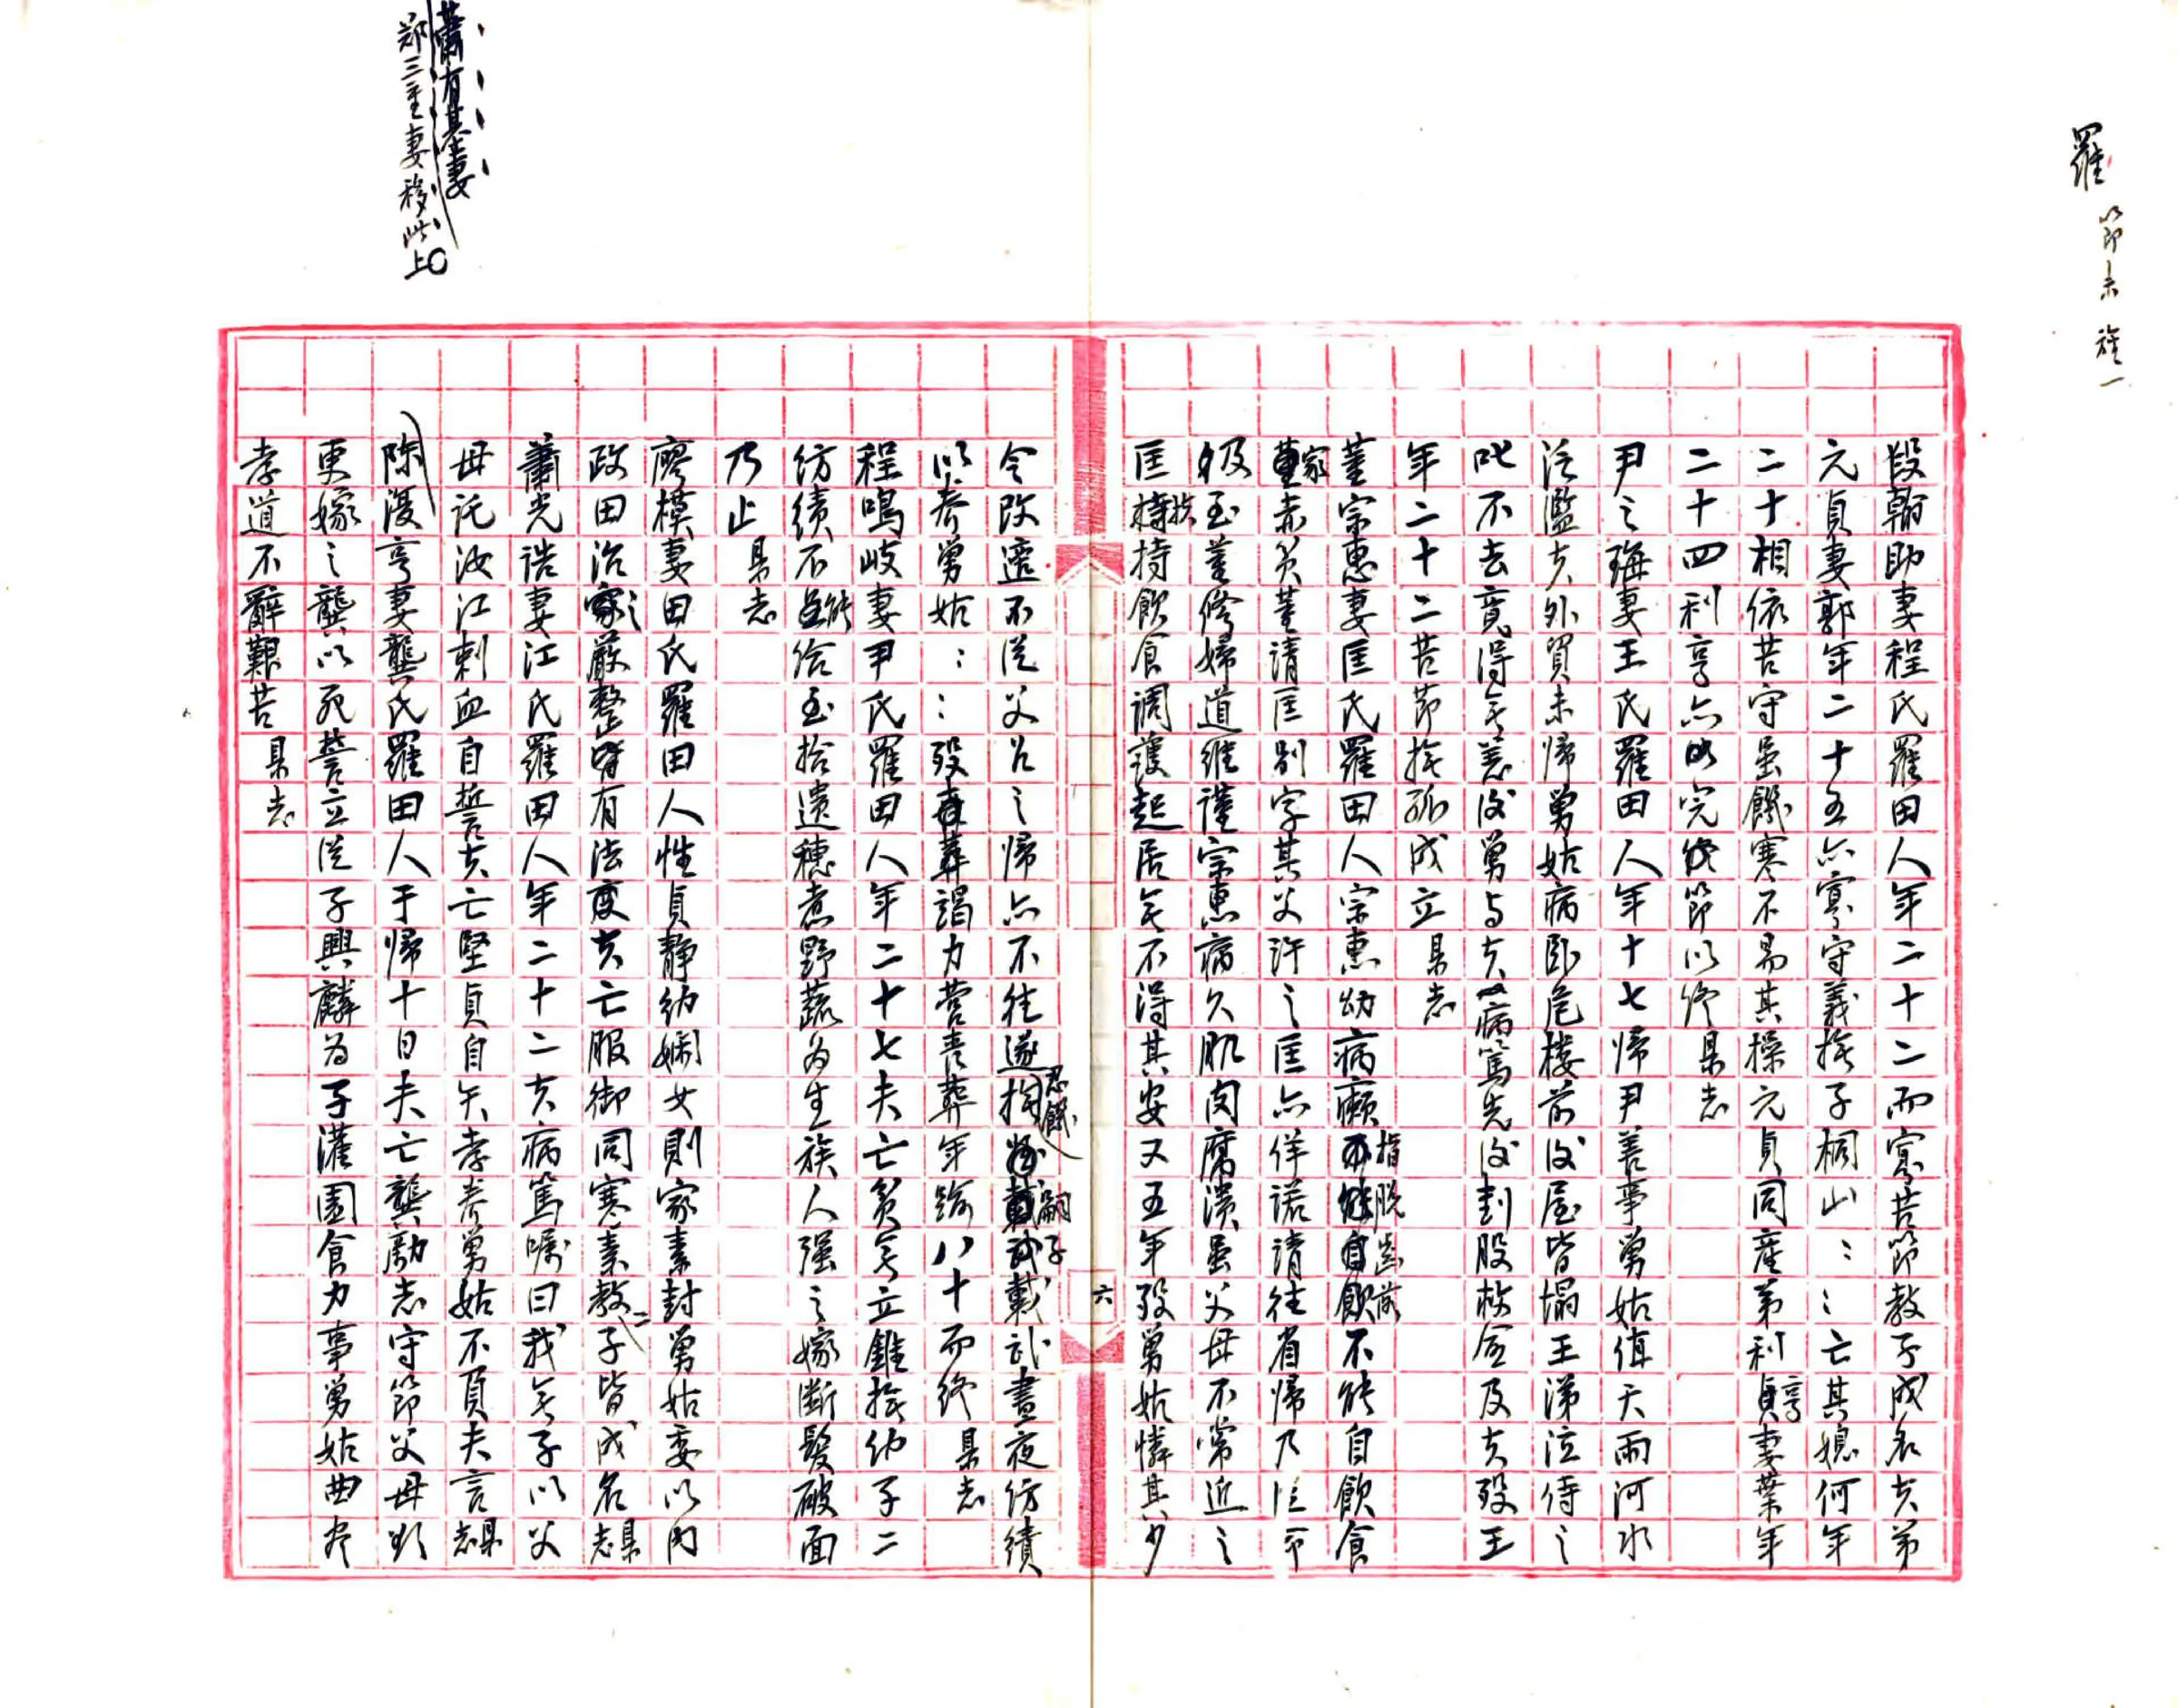 羅 節未 旌一
段翰助妻程氏羅田人年二十二而寡苦節教子成名夫弟
元貞妻郭年二十五亦寡守義撫子桐山〻〻亡其媳何年
二十相依苦守虽饑寒不易其操元貞同産弟利亨妻葉年
二十四利亨亦以完節以終 県志
尹之璑妻王氏羅田人年十七帰尹善事舅姑值天雨河水
泛濫夫外貿未帰舅姑病卧危楼前後屋皆塌王涕泣侍之
叱不去竟得無恙後舅与夫病篤先後刲股救愈及夫殁王
年二十二苦節撫孤成立 県志
董宗惠妻匡氏羅田人宗惠幼病癩指脱齿落不能自飲食
家赤贫董請匡别字其父許之匡亦佯諾請往省帰乃泣不
极至董修婦道維謹宗惠病久肌肉腐潰虽父母不常近之
匡扶持飲食調護起居無不得其安又五年殁舅姑憐其少
令改適不從父召之帰亦不往遂忍饑撫嗣子戴武晝夜纺績
以养舅姑〻〻殁竭力营喪葬年踰八十而終 県志
程鳴岐妻尹氏羅田人年二十七夫亡贫無立錐撫幼子二
纺績不能给至拾遺穂煮野蔬为生族人强之嫁断髮破面
乃止 県志
廖模妻田氏羅田人性貞静幼嫻女則家素封舅姑委以内
政田治之嚴整有法度夫亡服御同寒素教二子皆成名 県志
蕭光誥妻江氏羅田人年二十二夫病篤嘱曰我無子以父
母託汝江刺血自誓夫亡堅貞自矢孝养舅姑不負夫言 県志
陳漫亨妻龔氏羅田人于帰十日夫亡龔勵志守節父母欲
更嫁之龔以死誓立從子興麟为子灌園食力事舅姑曲尽
孝道不辭艱苦 県志
蕭有其妻
郑三重妻移此上
六